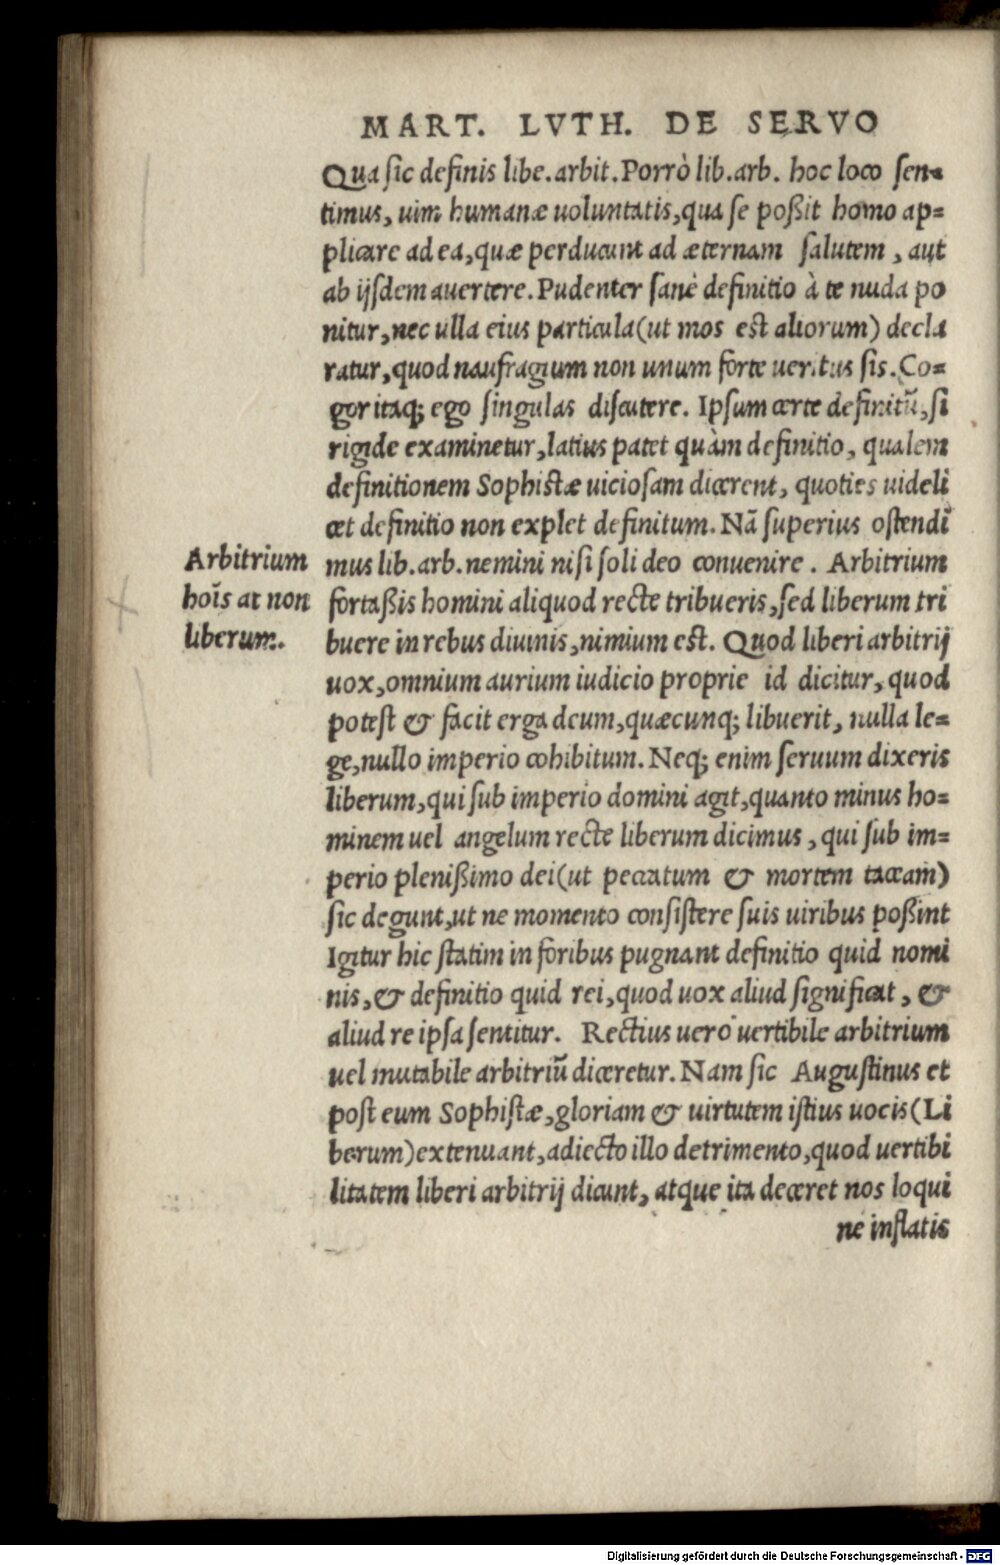 MART. LVTH. DE SERVO
Qua sic definis libe.arbit. Porrò lib.arb. hoc loco sen-
timus, uim humanæ uoluntatis, qua se poßit homo ap=
plicare ad ea, quæ perducunt ad æternam salutem, aut
ab ijsdem auertere. Pudenter sanè definitio à te nuda po
nitur, nec ulla eius particula (ut mos est aliorum) decla
ratur, quod naufragium non unum forte ueritus sis. Co=
gor itaq; ego singulas discutere. Ipsum certe definitũ, si
rigide examinetur, latius patet quàm definitio, qualem
definitionem Sophistæ uiciosam dicerent, quoties uideli
cet definitio non explet definitum. Nã superius ostendi
mus lib.arb. nemini nisi soli deo conuenire. Arbitrium
fortaßis homini aliquod recte tribueris, sed liberum tri
buere in rebus diuinis, nimium est. Quod liberi arbitrij
uox, omnium aurium iudicio proprie id dicitur, quod
potest & facit erga deum, quæcunq; libuerit, nulla le=
ge, nullo imperio cohibitum. Neq; enim seruum dixeris
liberum, qui sub imperio domini agit, quanto minus ho=
minem uel angelum recte liberum dicimus, qui sub im=
perio plenißimo dei (ut peccatum & mortem taceam)
sic degunt, ut ne momento consistere suis uiribus poßint
Igitur hic statim in foribus pugnant definitio quid nomi
nis, & definitio quid rei, quod uox aliud significat, &
aliud re ipsa sentitur. Rectius uero uertibile arbitrium
uel mutabile arbitriũ diceretur. Nam sic Augustinus et
post eum Sophistæ, gloriam & uirtutem istius uocis (Li
berum) extenuant, adiecto illo detrimento, quod uertibi
litatem liberi arbitrij dicunt, atque ita deceret nos loqui
ne inflatis
Arbitrium
hoĩs at non
liberum.
Digitalisierung gefördert durch die Deutsche Forschungsgemeinschaft - DFG